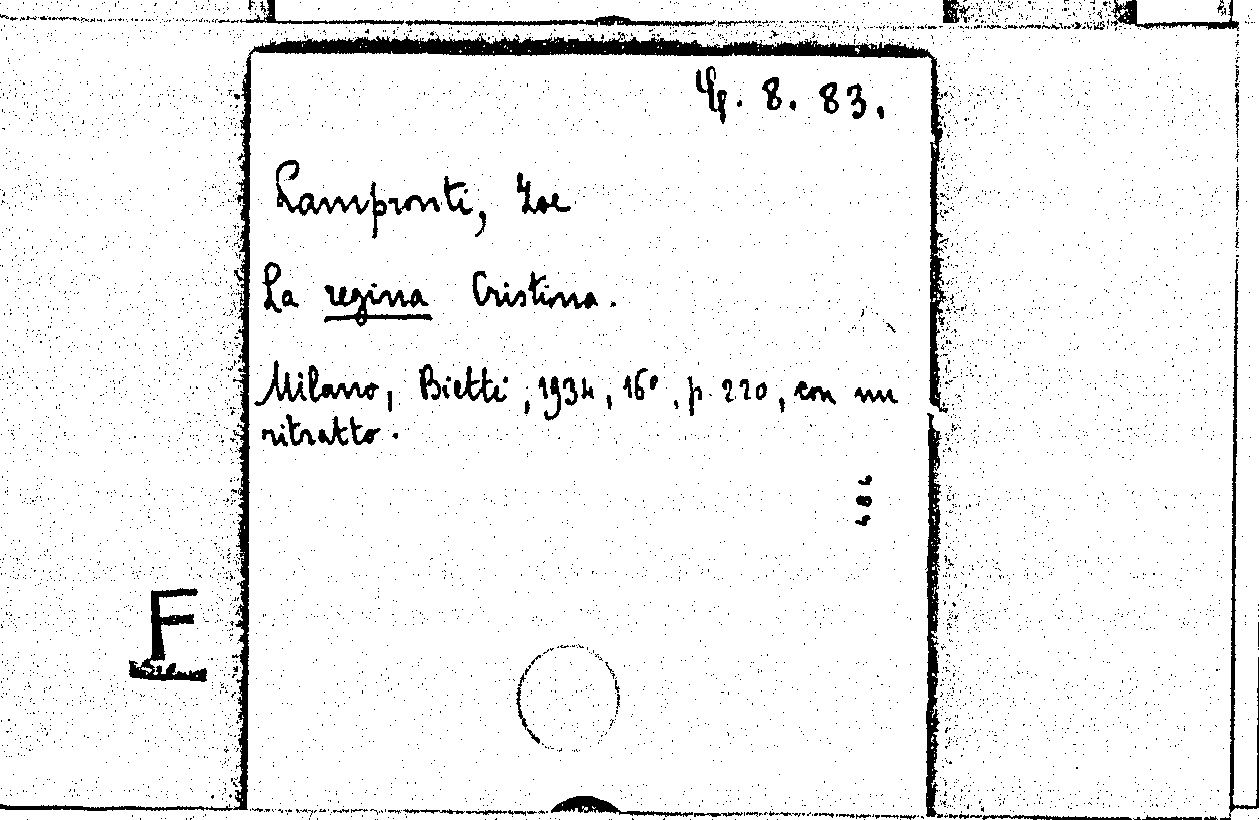 4. 8. 83.
Lampronti, Zoe
La regina Cristina.
Milano, Bietti, 1934, 16º, p. 220, con un
ritratto.
484
F